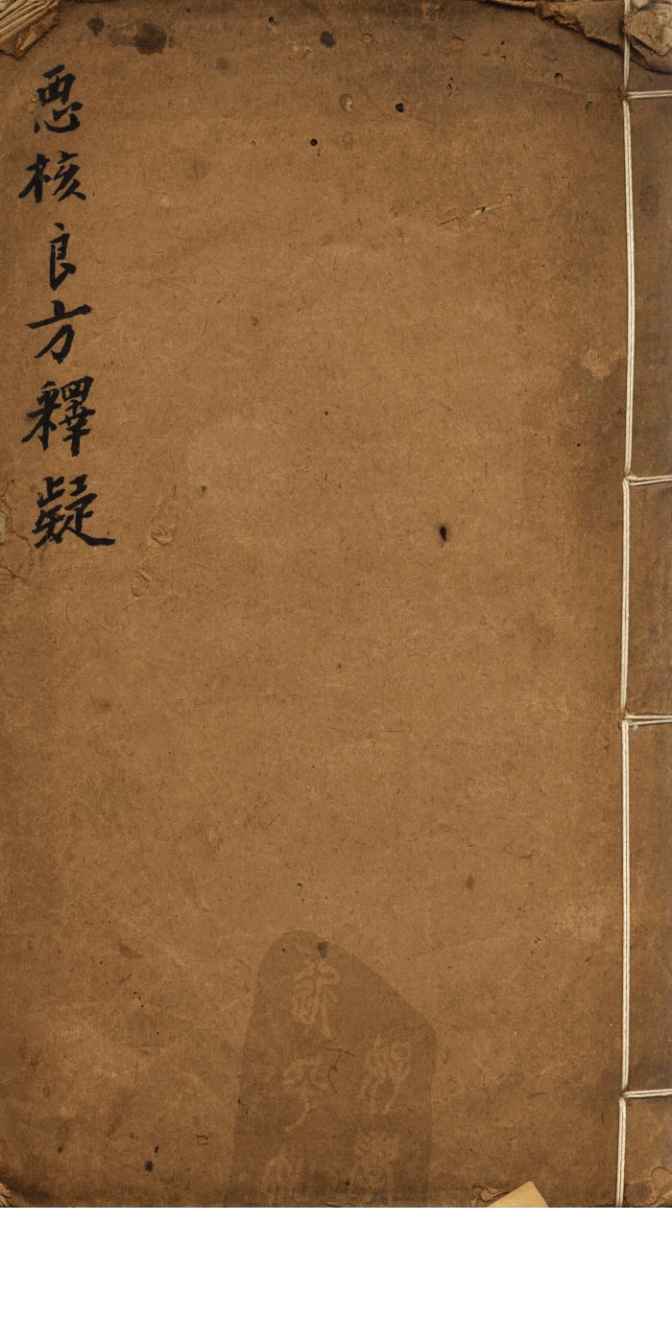 悪核良方釋疑